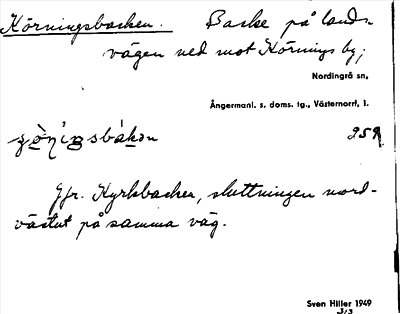 Körningsbacken. Backe på lands-
vägen ned mot Körnings by;
Nordingrå sn,
Ångermanl. s. doms. tg., Västernorrl, l.
259
Jfr. Kyrkbacken, sluttningen nord-
västut på samma väg.
Sven Hiller 1949
3/3